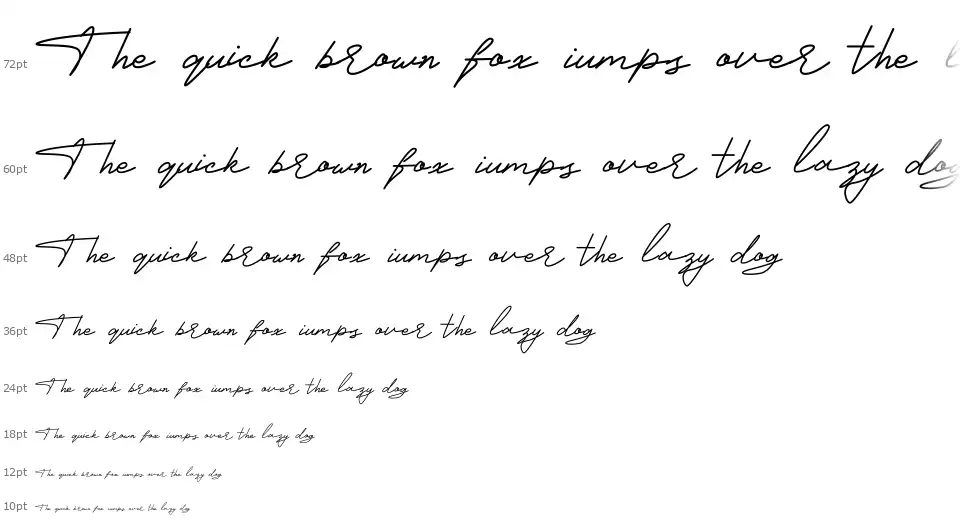 72pt The quick brown fox iumps over the
60pt The quick brown fox iumps over the lazy dog
48pt The quick brown fox iumps over the lazy dog
36pt The quick brown fox iumps over the lazy dog
24pt The quick brown fox iumps over the lazy dog
18pt The quick brown fox iumps over the lazy dog
12pt The quick brown fox iumps over the lazy dog
10pt The quick brown fox iumps over the lazy dog